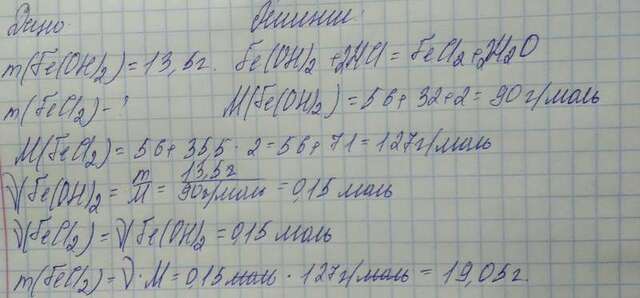 Дано: Решение:
m(Fe(OH)₂) = 13,5г. Fe(OH)₂ + 2HCl = FeCl₂ + 2H₂O
m(FeCl₂) - ? M(Fe(OH)₂) = 56 + 32 + 2 = 90 г/моль
M(FeCl₂) = 56 + 35,5 · 2 = 56 + 71 = 127 г/моль
ν(Fe(OH)₂ = m/M = 13,5г/90г/моль = 0,15 моль
ν(FeCl₂) = ν(Fe(OH)₂ = 0,15 моль
m(FeCl₂) = ν · M = 0,15 моль · 127 г/моль = 19,05 г.